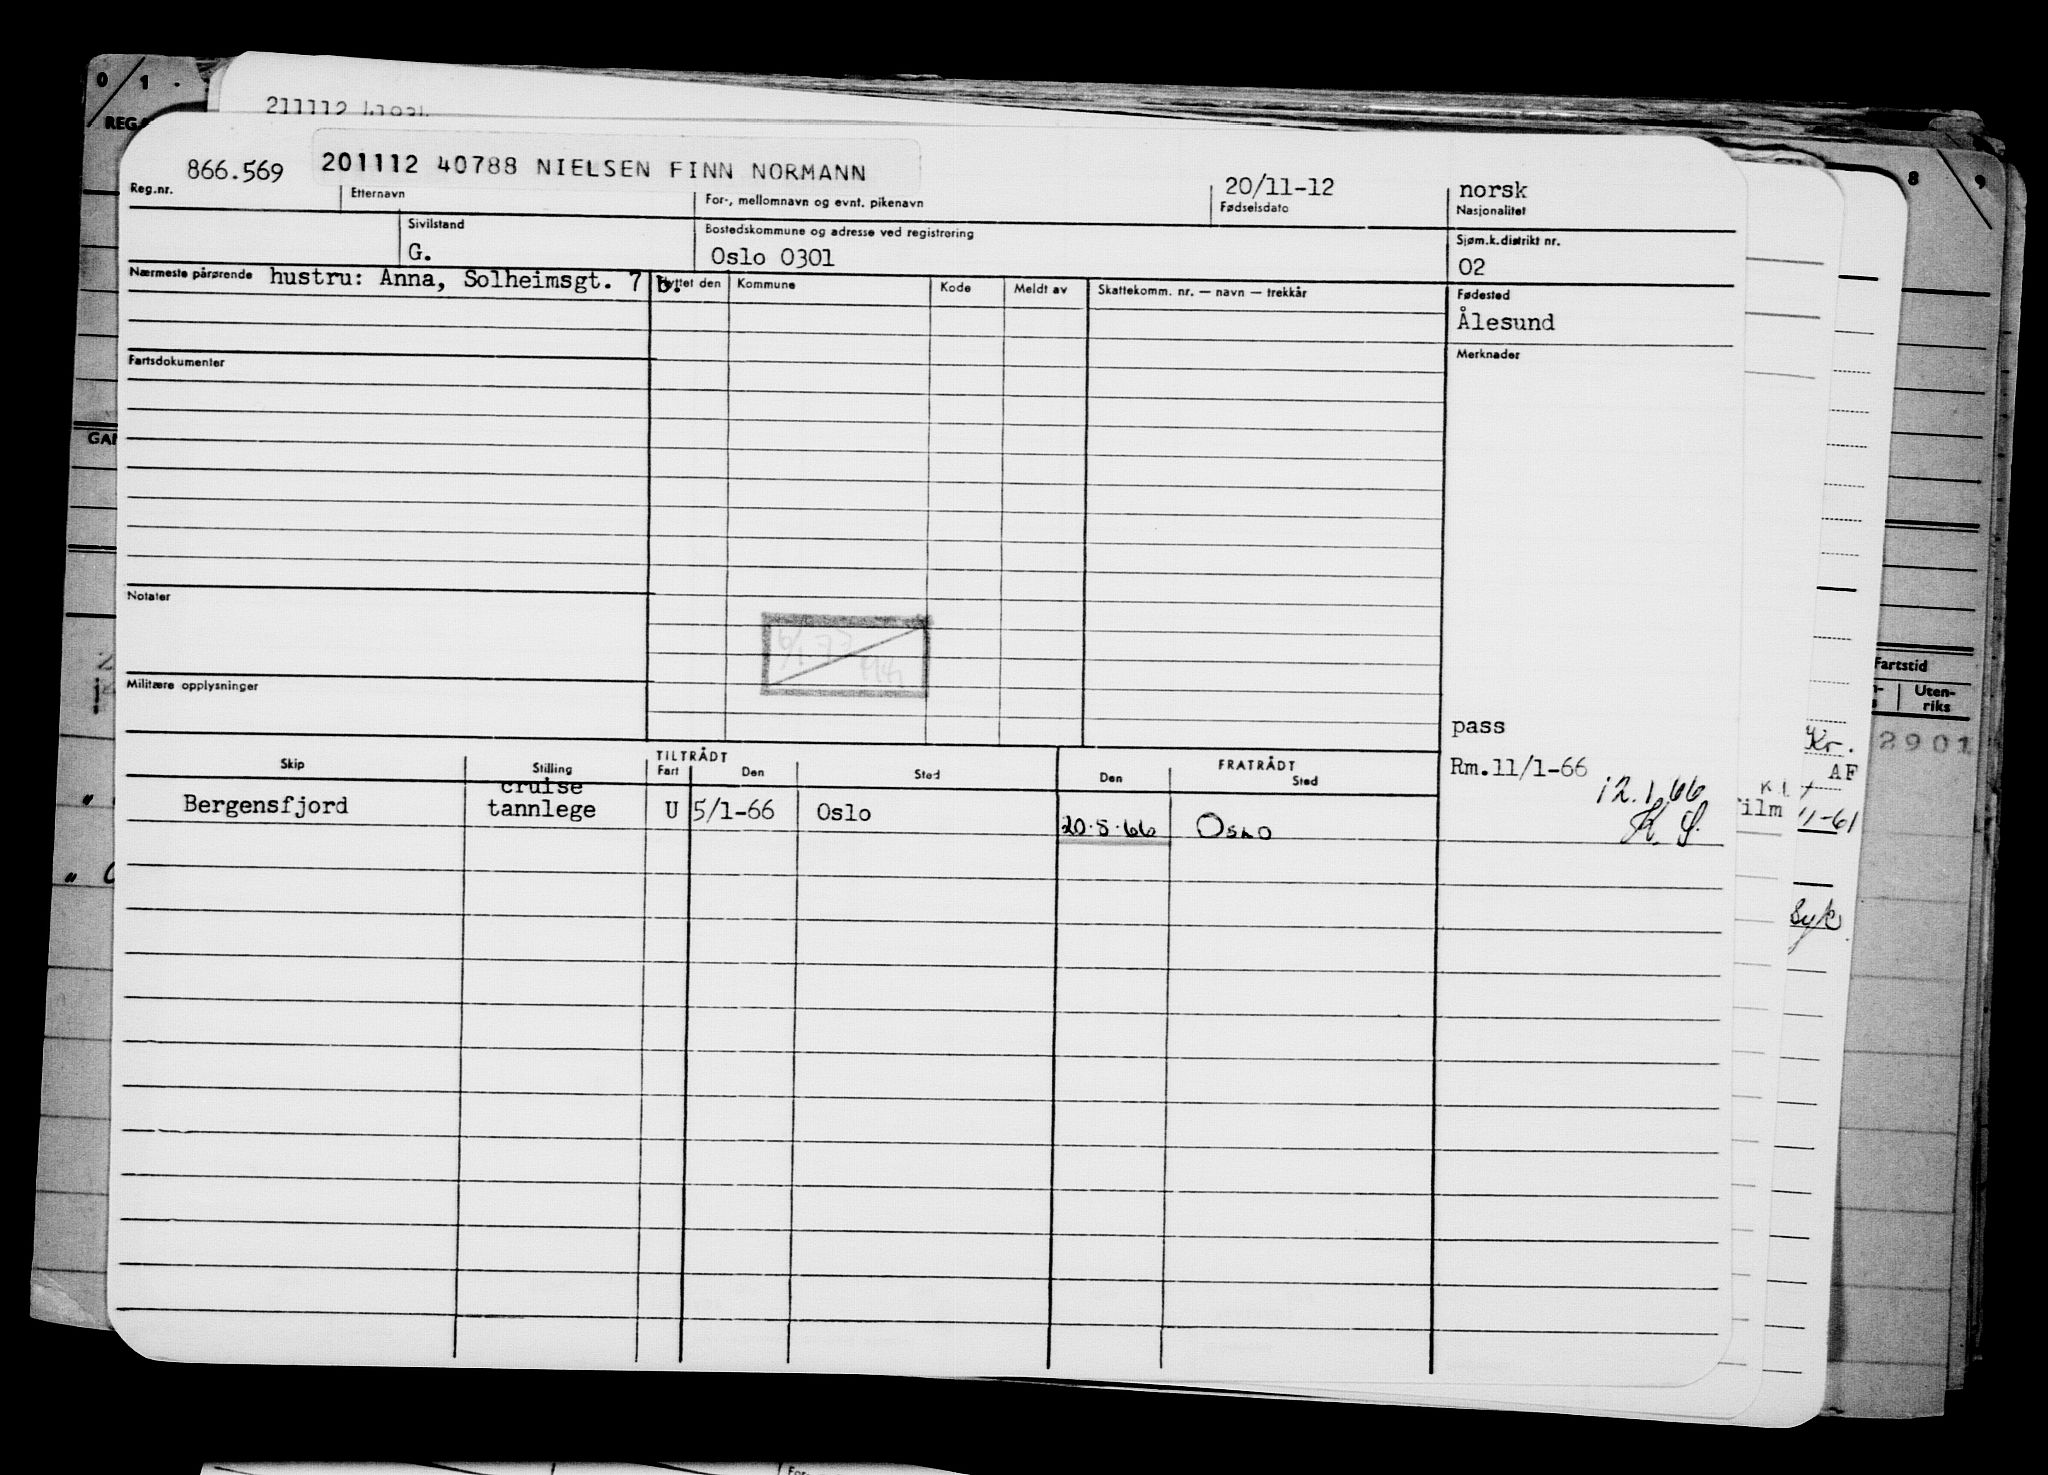 0 1
REG
211112
866.569
201112 40788 NIELSEN FINN NORMANN
20/11-12
norsk
Reg.nr.
Etternavn
For-, mellomnavn og evnt. pikenavn
Fødselsdato
Nasjonalitet
Sivilstand
G.
Bostedskommune og adresse ved registrering
Oslo 0301
Sjøm.k.distrikt nr.
02
Nærmeste pårørende hustru: Anna, Solheimsgt. 7 b.
Flyttet den
Kommune
Kode
Meldt av
Skattekomm. nr. — navn — trekkår
Fødested
Ålesund
Fartsdokumenter
Merknader
Notater
Militære opplysninger
pass
Rm.11/1-66
12.1.66
K. S.
Skip
Stilling
TILTRÅDT
Fart
Den
Sted
FRATRÅDT
Den
Sted
Bergensfjord
cruise
tannlege
U
5/1-66
Oslo
20.5.66
Oslo
8 9
GAN
Fartstid
Uten-
riks
2901
Kr.
AF
film
11-61
Syk
For-,